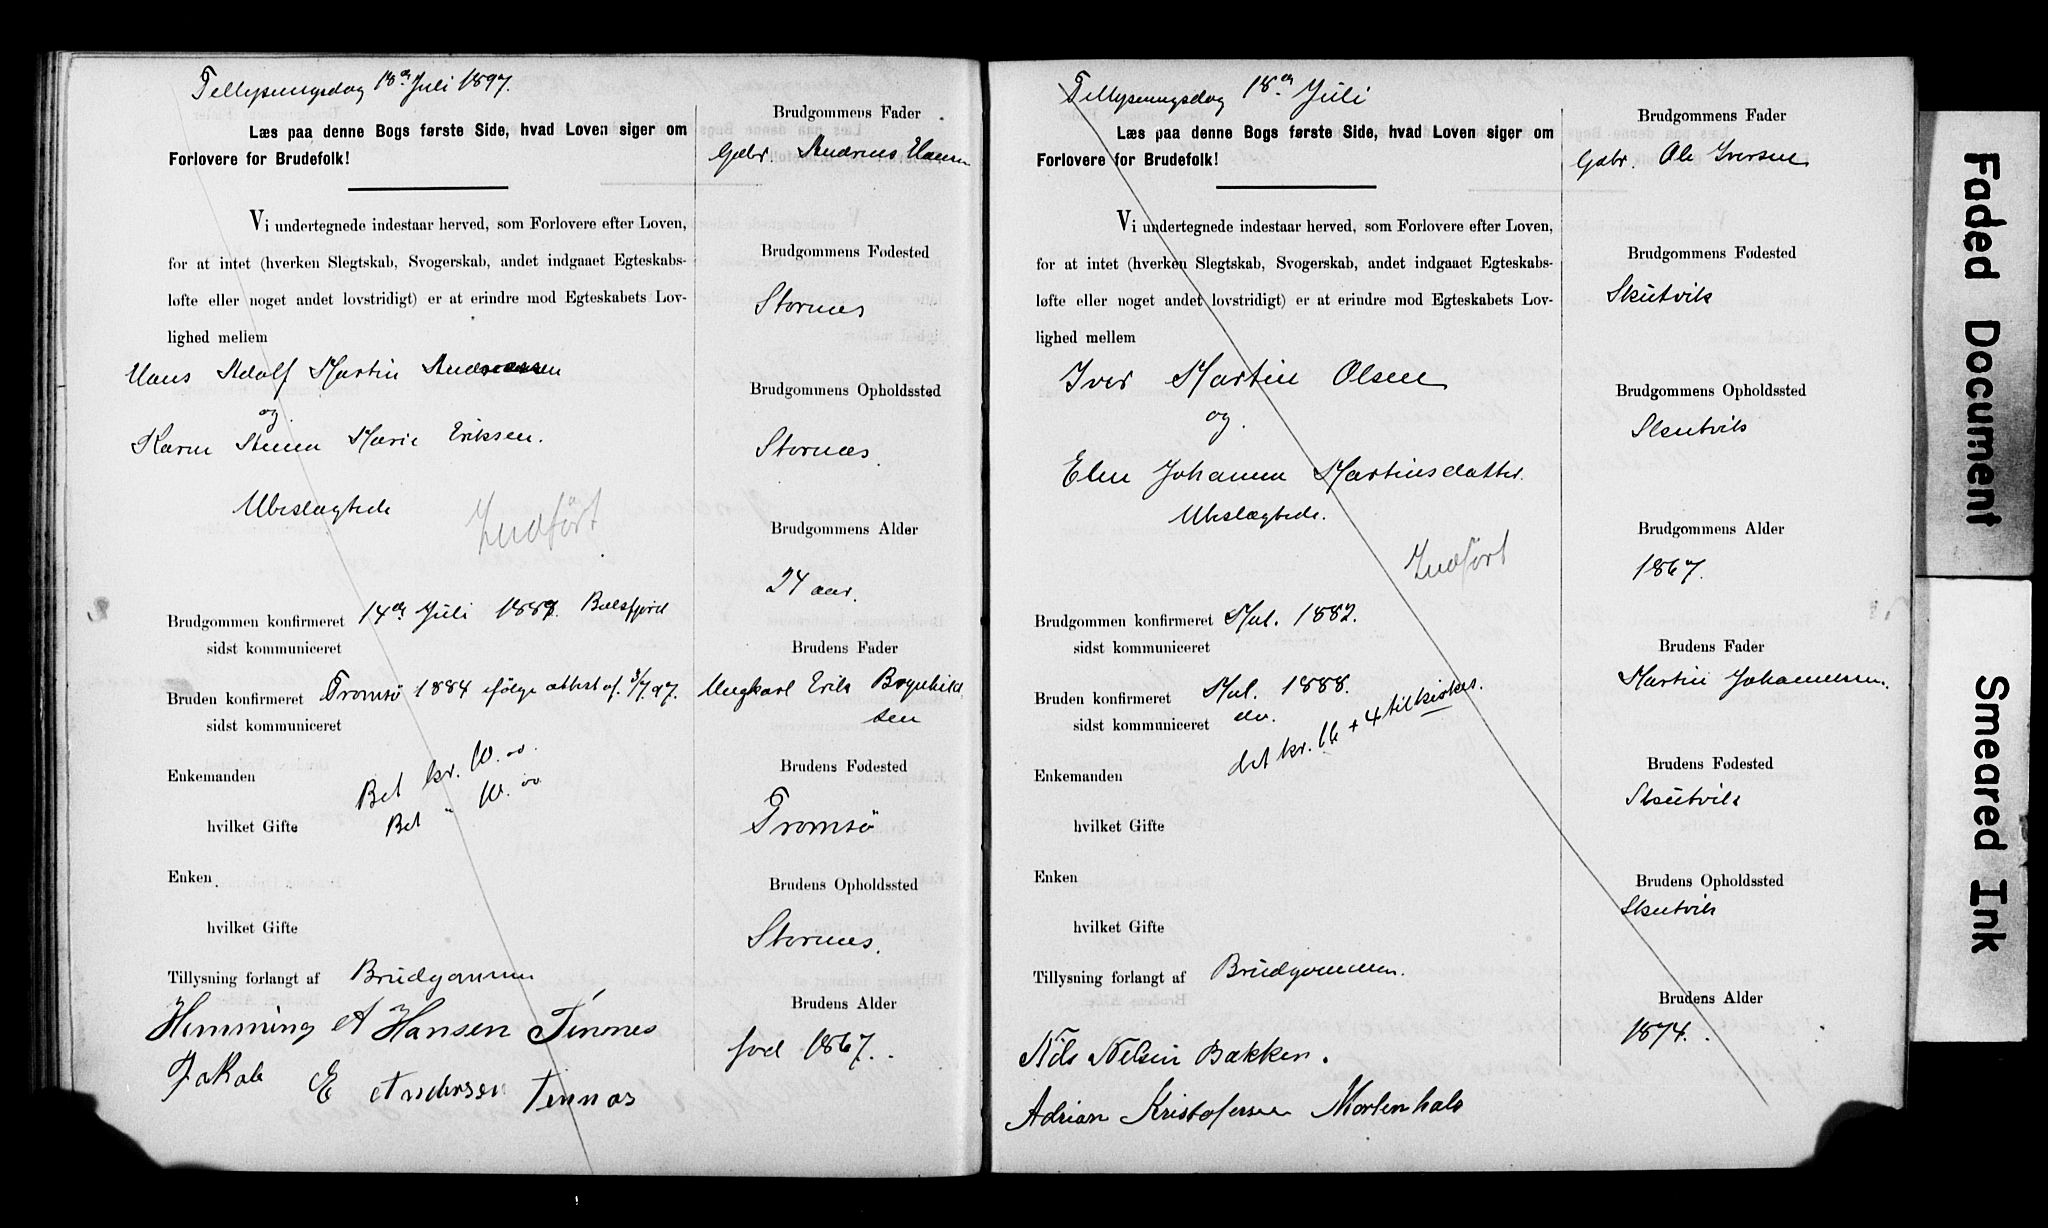 Tillysningsdag 18de Juli 1897.
Læs paa denne Bogs første Side, hvad Loven siger om
Forlovere for Brudefolk!
Vi undertegnede indestaar herved, som Forlovere efter Loven,
for at intet (hverken Slegtskab, Svogerskab, andet indgaaet Egteskabs-
løfte eller noget andet lovstridigt) er at erindre mod Egteskabets Lov-
lighed mellem
Hans Adolf Martin Andreassen
og
Marie Eriksen.
Ubeslægtede
Indført
Brudgommen konfirmeret 14de Juli 1889. Balsfjord
sidst kommuniceret
Bruden konfirmeret Tromsö 1884 ifölge attest af 3/7 97.
sidst kommuniceret
Enkemanden Bet kr. 10.00
hvilket Gifte Bet " 10.00
Enken
hvilket Gifte
Tillysning forlangt af Brudgommen
Hemming A Hansen Tennes
Jakob E Anderssen Tennes
Brudgommens Fader
Gbr. Andreas Hansen
Brudgommens Fødested
Stornes
Brudgommens Opholdssted
Stornes
Brudgommens Alder
24 aar.
Brudens Fader
Ungkarl Erik Brynhild
sen
Brudens Fødested
Tromsö
Brudens Opholdssted
Stornes.
Brudens Alder
fød 1867.
Tillysningsdag 18de Juli
Læs paa denne Bogs første Side, hvad Loven siger om
Forlovere for Brudefolk!
Vi undertegnede indestaar herved, som Forlovere efter Loven,
for at intet (hverken Slegtskab, Svogerskab, andet indgaaet Egteskabs-
løfte eller noget andet lovstridigt) er at erindre mod Egteskabets Lov-
lighed mellem
Iver Martin Olsen
og
Elen Johanna Martinsdatter.
Ubeslægtede.
Indført
Brudgommen konfirmeret Mal. 1882.
sidst kommuniceret
Bruden konfirmeret Mal. 1888.
sidst kommuniceret do.
Enkemanden bet kr. 16 + 4 til kirken.
hvilket Gifte
Enken
hvilket Gifte
Tillysning forlangt af Brudgommen.
Nils Nilsen Bakken.
Adrian Kristofersen Mortenhals
Brudgommens Fader
Gbr. Ole Iversen
Brudgommens Fødested
Skutvik
Brudgommens Opholdssted
Skutvik
Brudgommens Alder
1867.
Brudens Fader
Martin Johannesen.
Brudens Fødested
Skutvik
Brudens Opholdssted
Skutvik
Brudens Alder
1874.
Faded Document
Smeared Ink